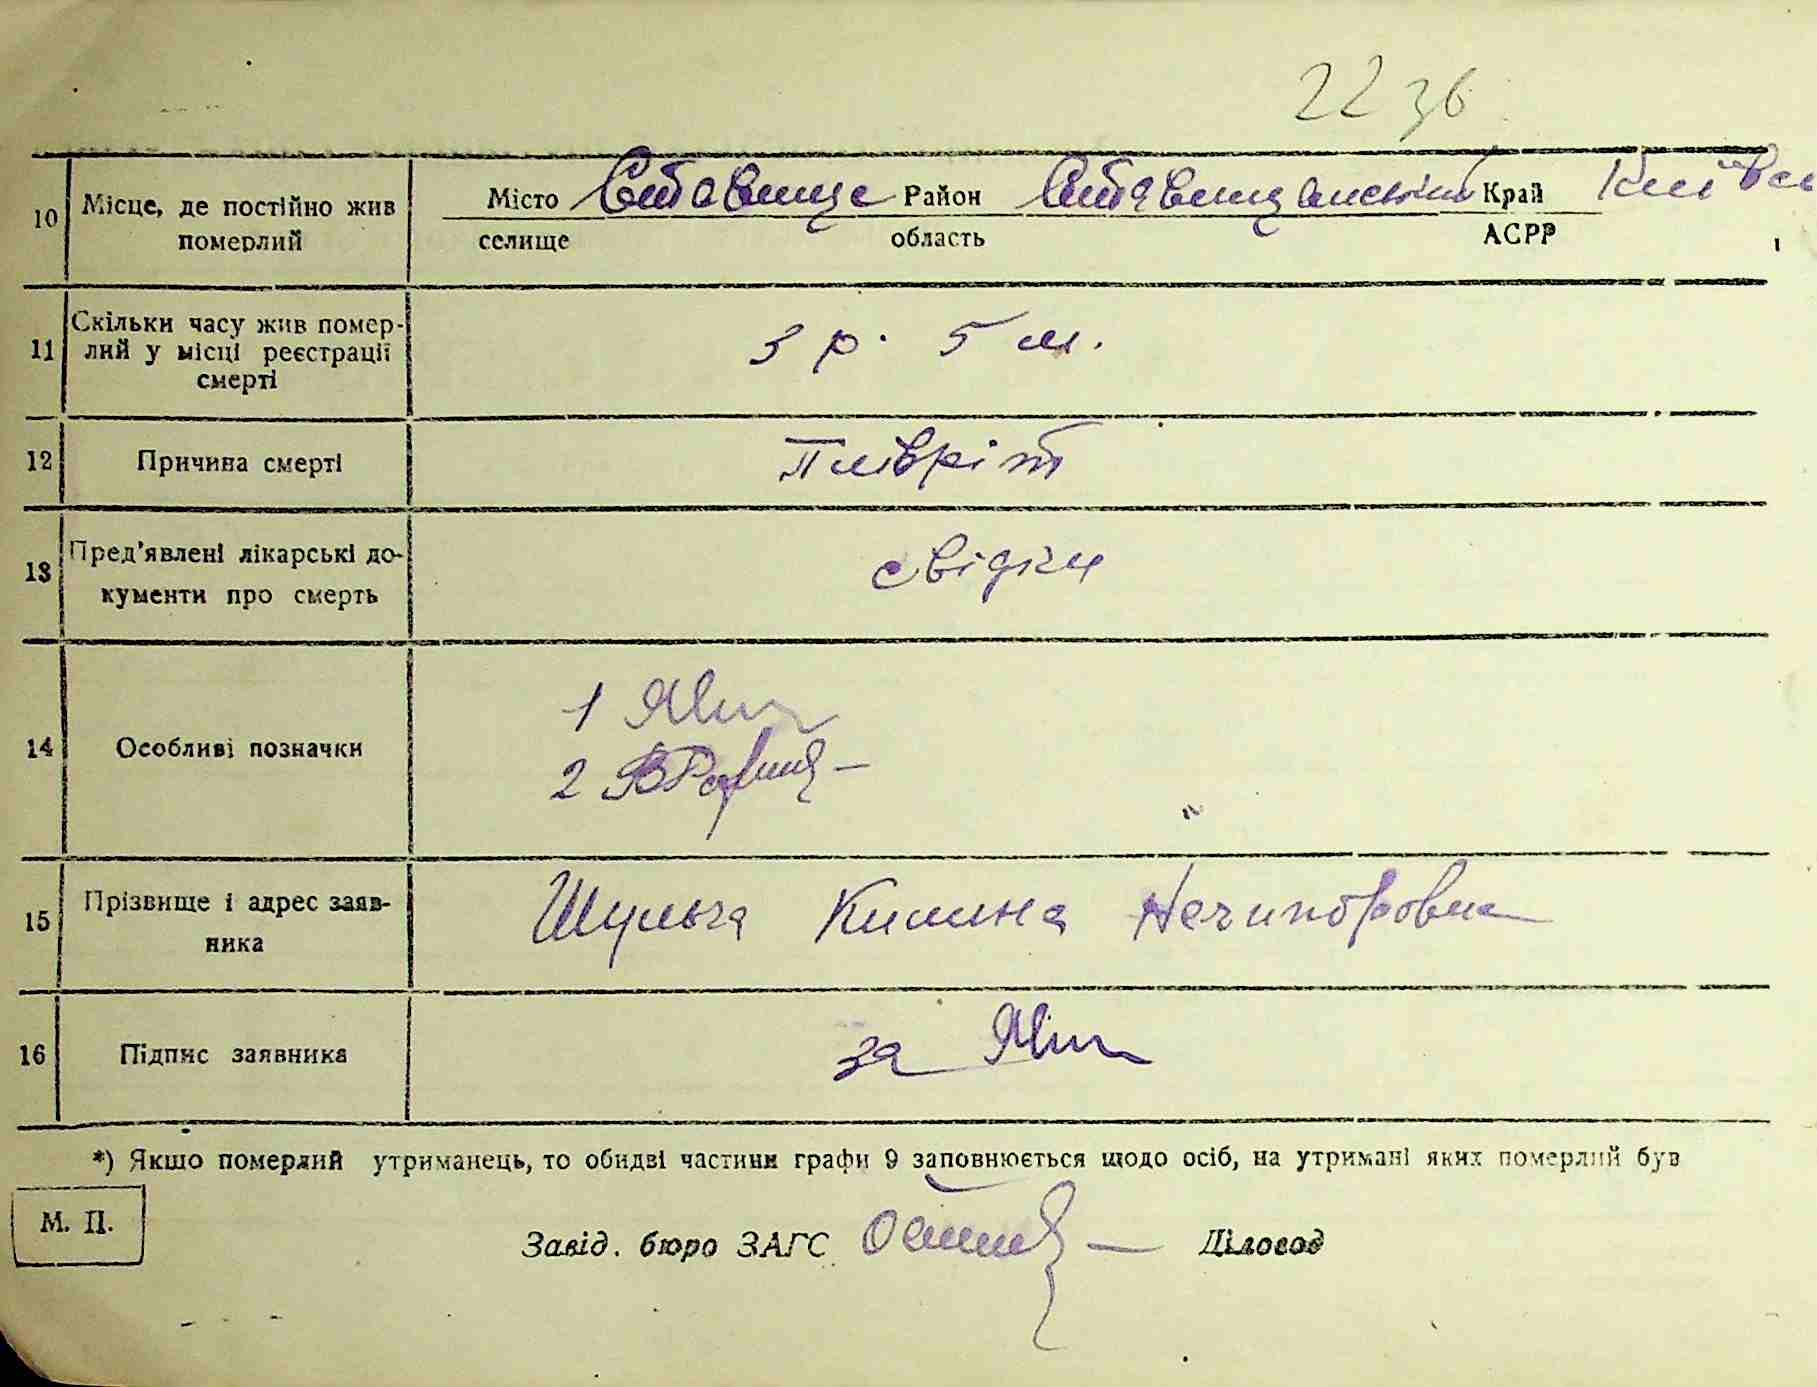 22 зв
10 Місце, де постійно жив Місто Ставище Район Ставищанський Край Київсь
померлий селище область АСРР
11 Скільки часу жив помер-
лий у місці реєстрації 3 р. 5 м.
смерті
12 Причина смерті Плівріт
13 Пред'явлені лікарські до- свідки
кументи про смерть
1
14 Особливі позначки
2
15 Прізвище і адрес заяв- Шульга Килина Нечипоровна
ника
16 Підпис заявника за
*) Якшо померлий утриманець, то обидві частини графи 9 заповнюється щодо осіб, на утримані яких померлий був
М. П.
Завід. бюро ЗАГС Діловод